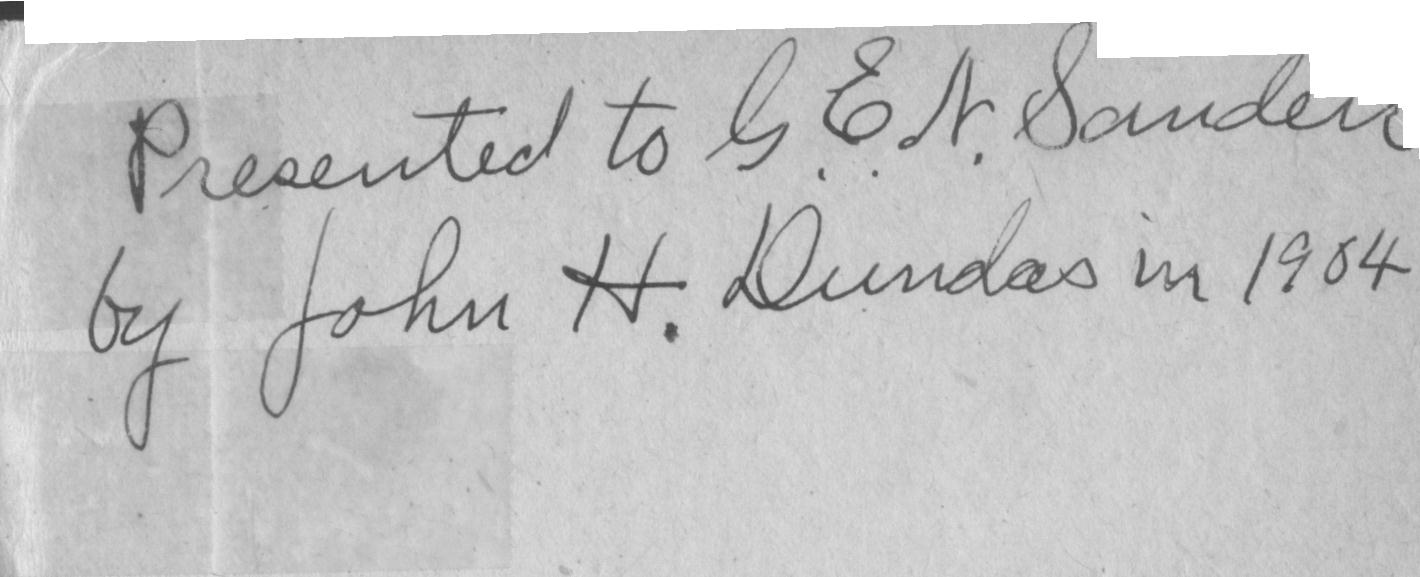 Presented to G. E. N. Sanders
by John H. Dundas in 1904